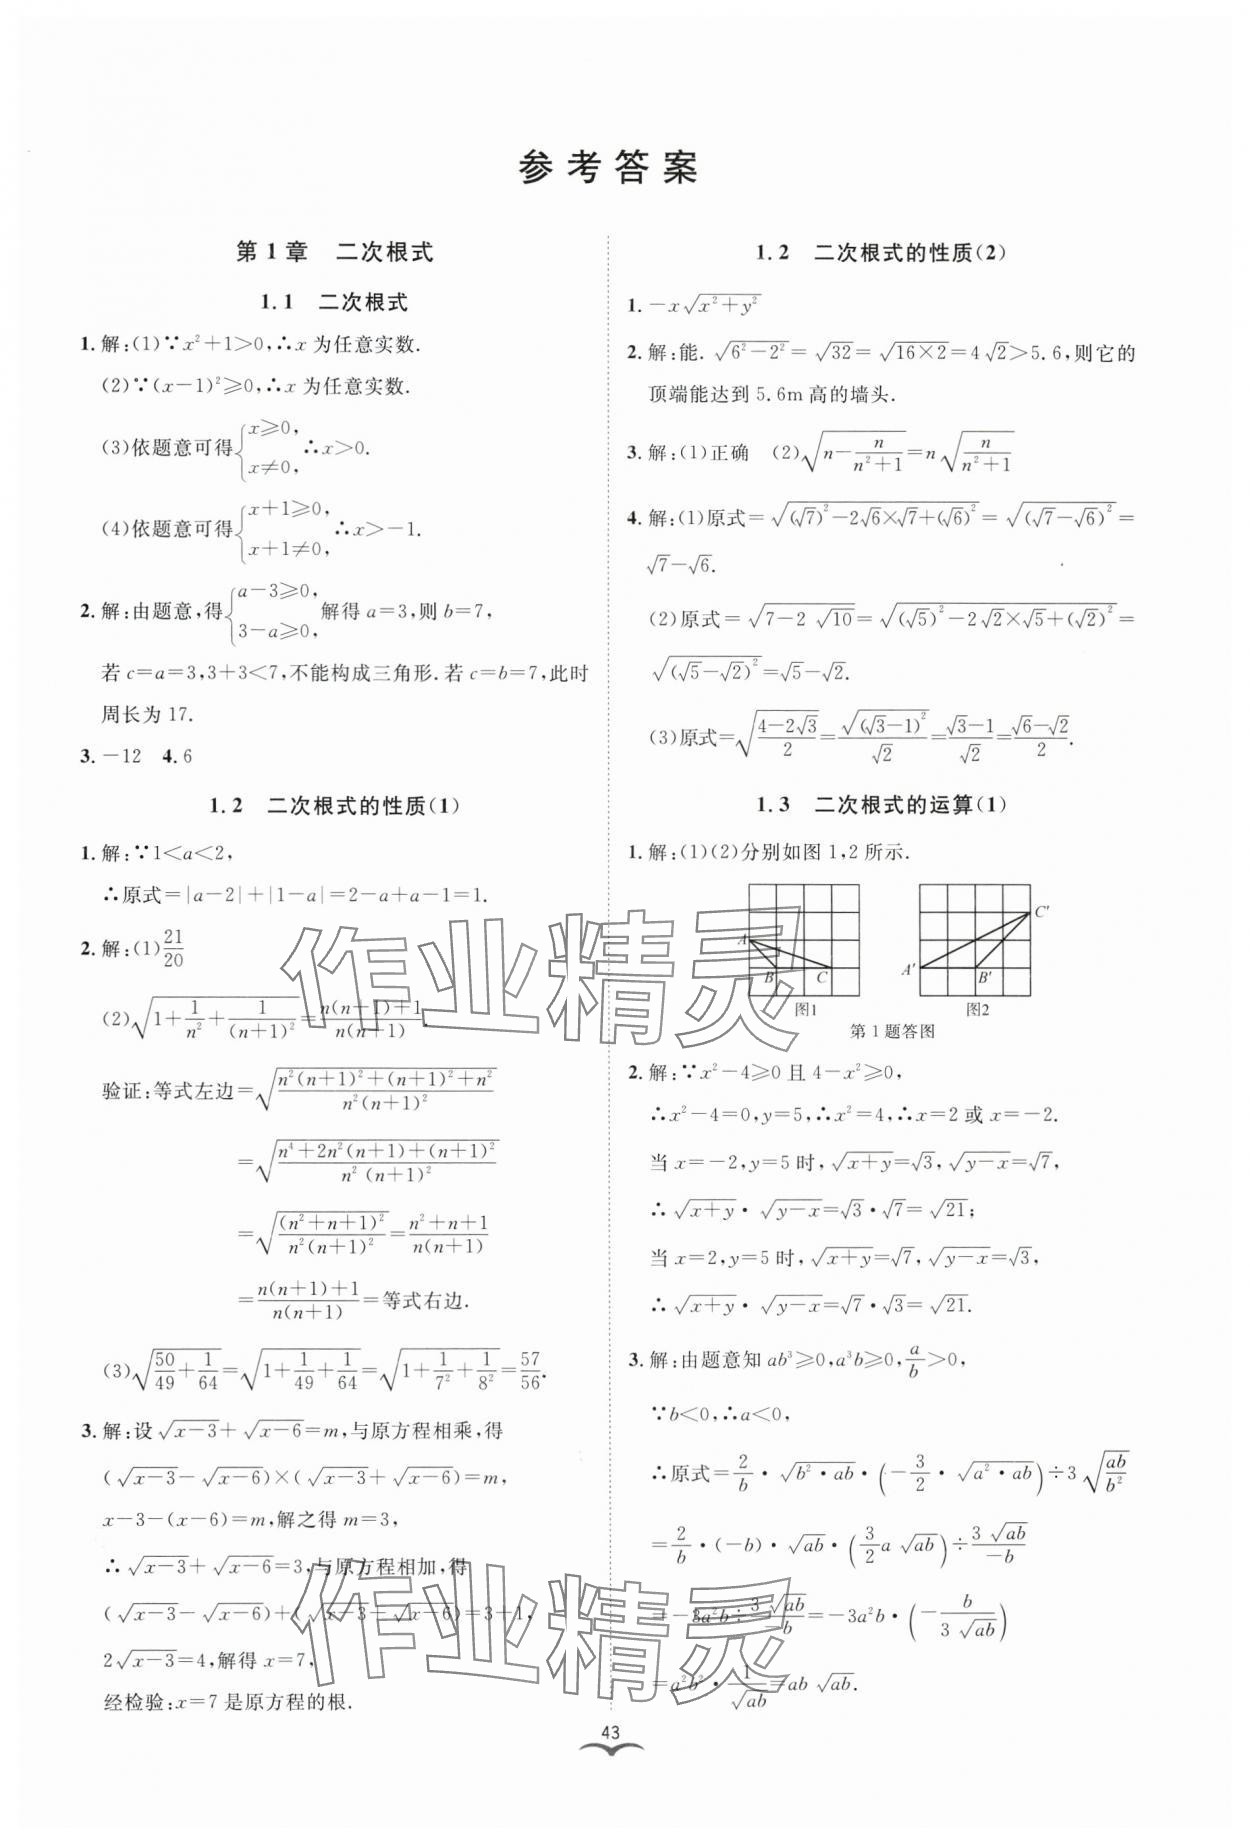 参考答案
第1章 二次根式
1.1 二次根式
1. 解:(1)∵x²+1>0,∴x为任意实数.
(2)∵(x-1)²≥0,∴x为任意实数.
(3)依题意可得{x≥0, x≠0, ∴x>0.
(4)依题意可得{x+1≥0, x+1≠0, ∴x>-1.
2. 解:由题意,得{a-3≥0, 3-a≥0, 解得a=3,则b=7,
若c=a=3,3+3<7,不能构成三角形.若c=b=7,此时
周长为17.
3. -12 4. 6
1.2 二次根式的性质(1)
1. 解:∵1<a<2,
∴原式=|a-2|+|1-a|=2-a+a-1=1.
2. 解:(1)21/20
(2)√(1+1/n²+1/(n+1)²)=(n(n+1)+1)/(n(n+1)).
验证:等式左边=√((n²(n+1)²+(n+1)²+n²)/(n²(n+1)²))
=√((n⁴+2n²(n+1)+(n+1)²)/(n²(n+1)²))
=√((n²+n+1)²/(n²(n+1)²))=(n²+n+1)/(n(n+1))
=(n(n+1)+1)/(n(n+1))=等式右边.
(3)√(50/49+1/64)=√(1+1/49+1/64)=√(1+1/7²+1/8²)=57/56.
3. 解:设√(x-3)+√(x-6)=m,与原方程相乘,得
(√(x-3)-√(x-6))×(√(x-3)+√(x-6))=m,
x-3-(x-6)=m,解之得m=3,
∴√(x-3)+√(x-6)=3,与原方程相加,得
(√(x-3)-√(x-6))+(√(x-3)+√(x-6))=3+1,
2√(x-3)=4,解得x=7,
经检验:x=7是原方程的根.
1.2 二次根式的性质(2)
1. -x√(x²+y²)
2. 解:能.√(6²-2²)=√32=√(16×2)=4√2>5.6,则它的
顶端能达到5.6m高的墙头.
3. 解:(1)正确 (2)√(n-n/(n²+1))=n√(n/(n²+1))
4. 解:(1)原式=√((√7)²-2√6×√7+(√6)²)=√((√7-√6)²)=
√7-√6.
(2)原式=√(7-2√10)=√((√5)²-2√2×√5+(√2)²)=
√((√5-√2)²)=√5-√2.
(3)原式=√((4-2√3)/2)=√((√3-1)²)/√2=(√3-1)/√2=(√6-√2)/2.
1.3 二次根式的运算(1)
1. 解:(1)(2)分别如图1,2所示.
A B C A′ B′ C′
图1 图2
第1题答图
2. 解:∵x²-4≥0且4-x²≥0,
∴x²-4=0,y=5,∴x²=4,∴x=2或x=-2.
当x=-2,y=5时,√(x+y)=√3,√(y-x)=√7,
∴√(x+y)·√(y-x)=√3·√7=√21;
当x=2,y=5时,√(x+y)=√7,√(y-x)=√3,
∴√(x+y)·√(y-x)=√7·√3=√21.
3. 解:由题意知ab³≥0,a³b≥0,a/b>0,
∵b<0,∴a<0,
∴原式=2/b·√(b²·ab)·(-3/2·√(a²·ab))÷3√(ab/b²)
=2/b·(-b)·√ab·(3/2 a√ab)÷(3√ab)/(-b)
=-3a²b÷(3√ab)/(-b)=-3a²b·(-b/(3√ab))
=a²b²·1/√ab=ab√ab.
43
作业精灵
作业精灵